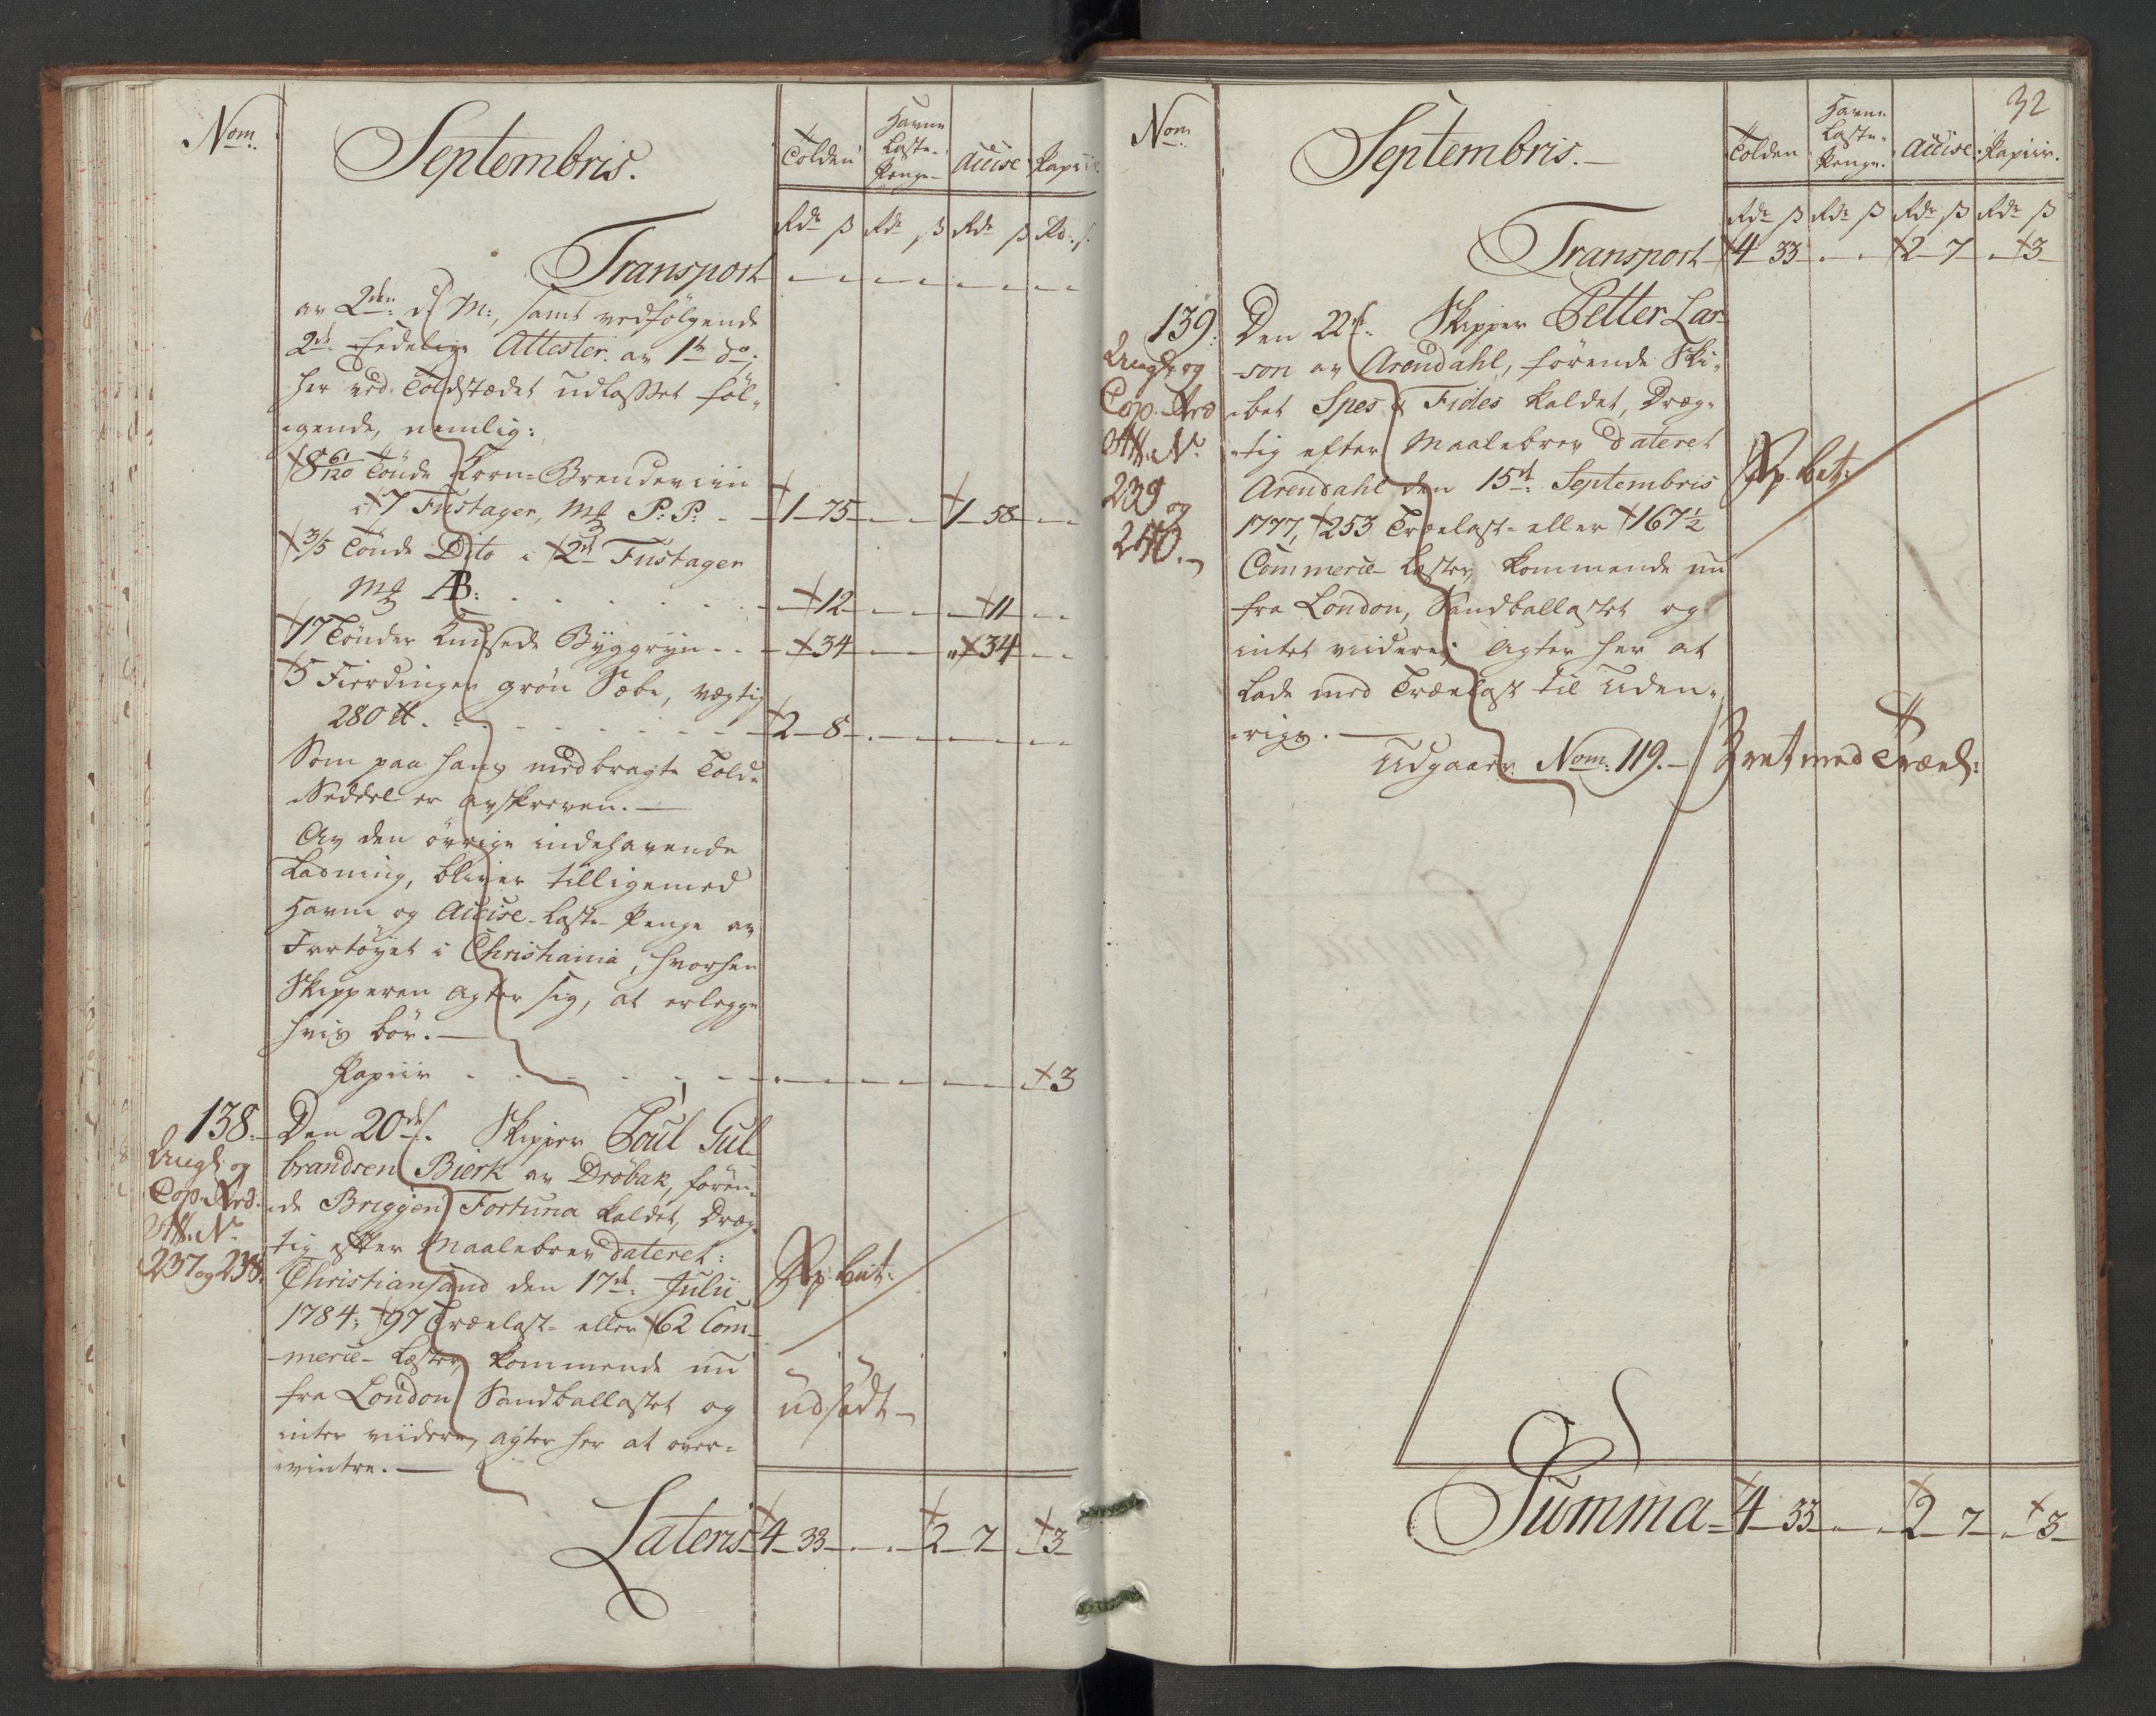 Nom:
Septembris.
Tolden
Havne
Laste-
Penge-
Accise
Papiir.
Rdr ß Rdr ß Rdr ß Rd: ß.
Transport
av 2den: ds M:, samt vedfølgende
2de Eedelige Attester av 1te do:
her ved Toldstædet udlosset føl-
gende, nemlig:
8 61/120 Tønde Korn-Brendeviin
i 7 Fustager, Mg P: P: 1-75 1-58
3/5 Tønde Dito i 2de Fustager
Mg AB: 12 11
17 Tønder Knusede Byggryn 34 34
5 Fierdinger grøn Sæbe, vægtig
280 ℔. 2-8
Som paa hans medbragte Told-
Seddel er avskreven.—
Av den øvrige indehavende
Ladning, bliver tilligemed
Havne og Accise-Laste-Penge av
Fartøyet i Christiania, hvorhen
Skipperen agter sig, at erlegge
hvis bør.—
Papiir 3
138.
Angl: og
Cop: Prod:
Att: No
237 og 238.
Den 20de ds. Skipper Poul Gul-
brandsen Bierk av Drøbak, føren-
de Briggen Fortuna kaldet, Dræg-
tig efter Maalebrev dateret:
Christiansand den 17de: Julii
1784, 97 Trælast- eller 62 Com-
merce-Læster, kommende nu
fra London Sandballastet og
intet viidere, agter her at over-
vintre.—
Pp: bet:
udsødt
Lateris 4-33 2-7 3
32
Nom:
Septembris.—
Tolden
Havne
Laste-
Penge.
Accise.
Papiir.
Rdr ß Rdr ß Rdr ß Rdr ß
Transport 4-33 2-7 3
139.
Angl: og
Cop: Prod
Att: No
239 og
240.
Den 22de. Skipper Petter Lar-
son av Arendahl, førende Ski-
bet Spes & Fides kaldet, Dræg-
tig efter Maalebrev dateret
Arendahl den 15de: Septembris
1777, 253 Trælast- eller 167 1/2
Commerce-Læster, kommende nu
fra London, Sandballastet og
intet viidere; Agter her at
lade med Trælast til Uden-
rigs.—
Pp: bet:
Udgaaer Nom: 119.—
Bret med Træel:
Summa 4-33 2-7 3